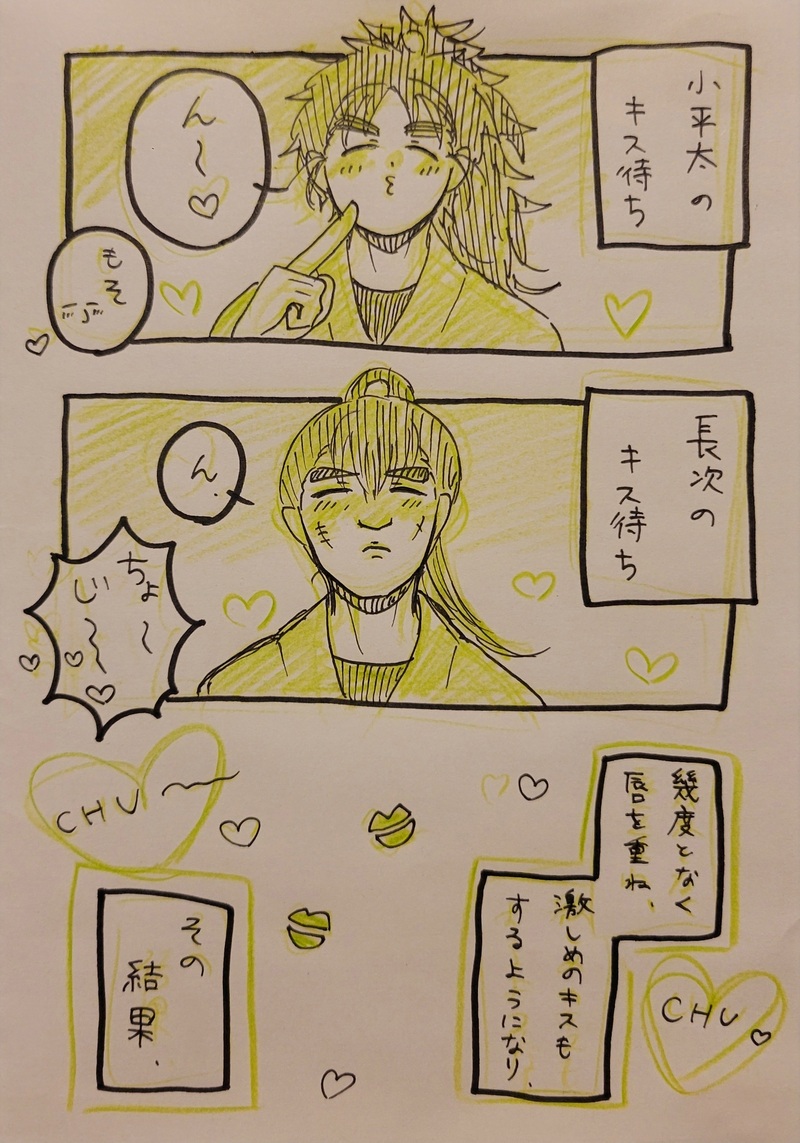 小平太の
キス待ち
ん〜♡
もそ
長次の
キス待ち
ん.
ちょ〜
じ〜〜
幾度となく
唇を重ね、
激しめのキスも
するようになり、
CHU
CHU
その
結果、